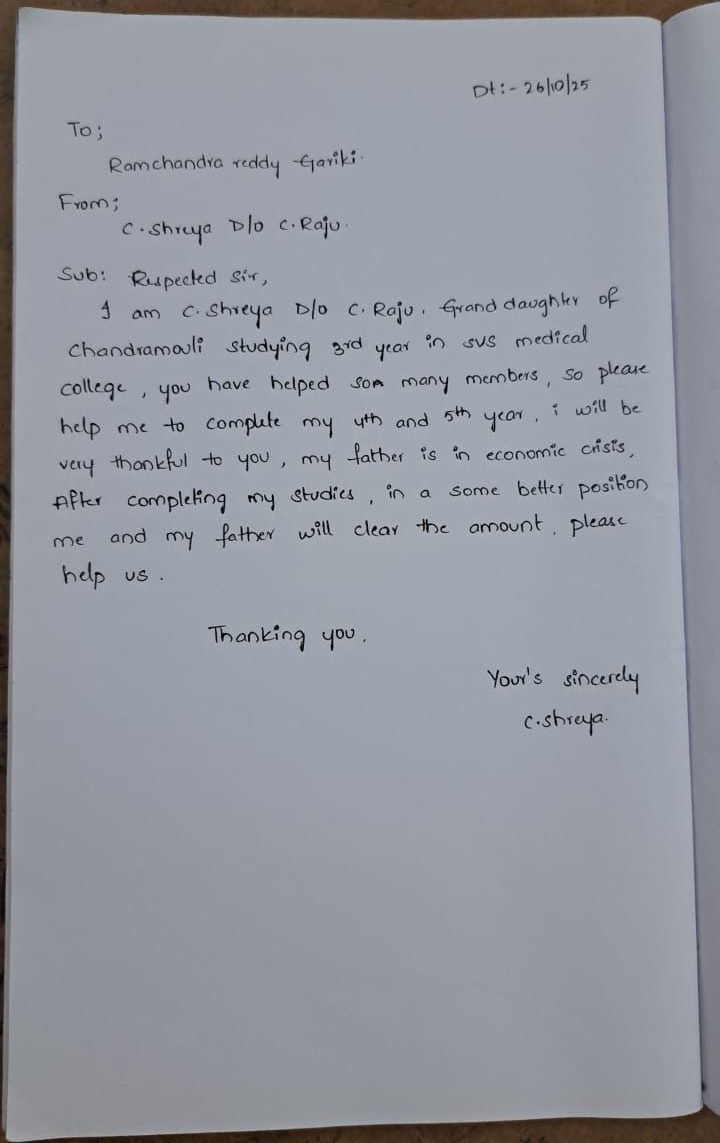 Dt:- 26/10/25
To;
Ramchandra reddy Gariki.
From;
C. Shreya D/o C. Raju.
Sub: Respected Sir,
I am C. Shreya D/o C. Raju. Grand daughter of
Chandramouli studying 3rd year in SVS medical
college, you have helped som many members, so please
help me to complete my 4th and 5th year, i will be
very thankful to you, my father is in economic crisis,
After completing my studies, in a some better position
me and my father will clear the amount. please
help us.
Thanking you.
Your's sincerely
C. Shreya.